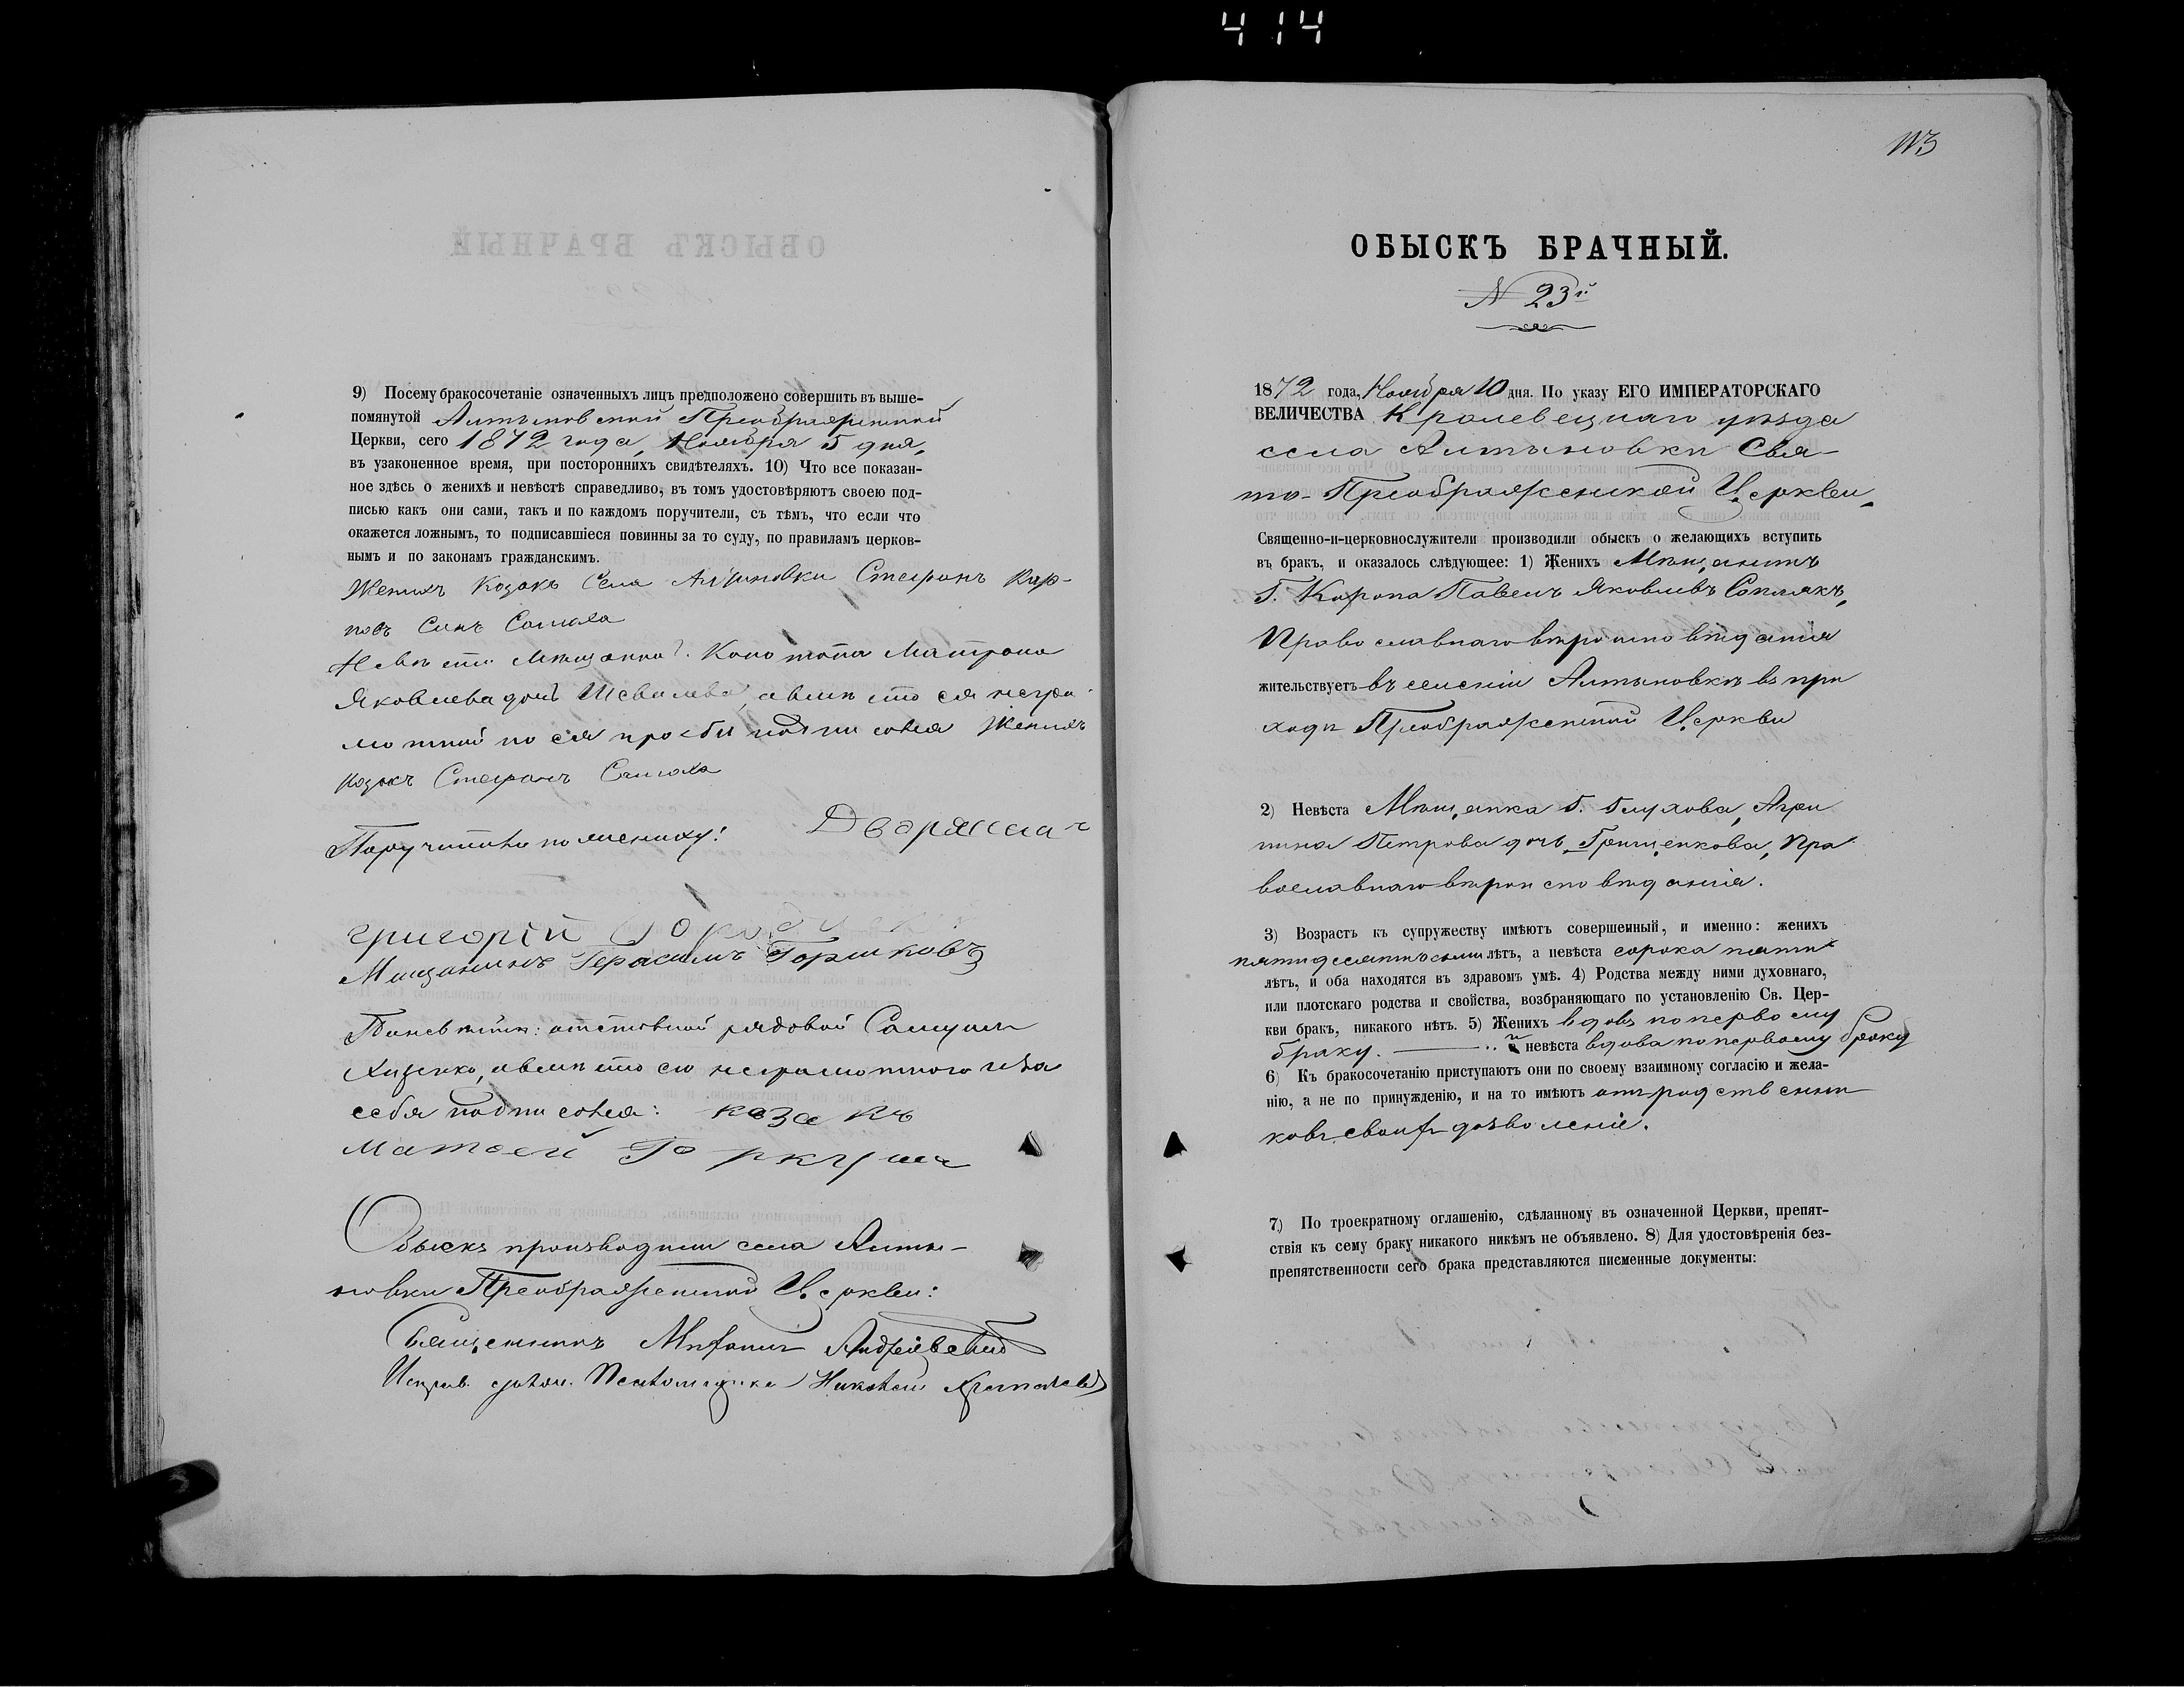 414
9) Посему бракосочетаніе означенныхъ лицъ предположено совершить въ выше-
помянутой Алтыновской Преображенской
Церкви, сего 1872 года, Ноября 5 дня,
въ узаконенное время, при постороннихъ свидѣтеляхъ. 10) Что все показан-
ное здѣсь о женихѣ и невѣстѣ справедливо, въ томъ удостовѣряютъ своею под-
писью какъ они сами, такъ и по каждомъ поручители, съ тѣмъ, что если что
окажется ложнымъ, то подписавшіеся повинны за то суду, по правиламъ церков-
нымъ и по законамъ гражданскимъ.
Женихъ Козакъ Села Алтыновки Стефанъ Кар-
повъ Сынъ
Конотопа Матрона
Яковлева дочь, а вмѣсто ея негра
мотной по ея прозбы женихъ
козакъ Стефанъ
Поручители по женихѣ: Дворянинъ
григорій
Мещанинъ Герасимъ Горшковъ
По невѣстѣ: отставной рядовой
а вмѣсто его неграмотного и за
себя козакъ
Матвей Горкуша
Обыскъ производили села Алты-
новки Преображенской Церкви:
Священникъ Андріевскій
Псаломщика Николай
ОБЫСКЪ БРАЧНЫЙ.
N 23й
1872 года, Ноября 10 дня. По указу ЕГО ИМПЕРАТОРСКАГО
ВЕЛИЧЕСТВА Кролевецкаго уѣзда
села Алтыновки Свя-
то-Преображенской Церкви,
Священно-и-церковнослужители производили обыскъ о желающихъ вступить
въ бракъ, и оказалось слѣдующее: 1) Женихъ Мѣщанинъ
Г. Коропа Павелъ Яковлевъ
Православнаго вѣроисповѣданія
жительствуетъ въ селеніи Алтыновкѣ въ при
ходѣ Преображенской Церкви
2) Невѣста Мѣщанка Г. Глухова, Агри
пина Петрова дочь, Грищенкова, Пра
вославнаго вѣроисповѣданія.
3) Возрастъ къ супружеству имѣютъ совершенный, и именно: женихъ
пятидесятъ семи лѣтъ, а невѣста сорока пяти
лѣтъ, и оба находятся въ здравомъ умѣ. 4) Родства между ними духовнаго,
или плотскаго родства и свойства, возбраняющаго по установленію Св. Цер-
кви бракъ, никакого нѣтъ. 5) Женихъ вдовъ по первому
браку. и невѣста вдова по первому браку
6) Къ бракосочетанію приступаютъ они по своему взаимному согласію и жела-
нію, а не по принужденію, и на то имѣютъ отъ родственни
ковъ своихъ дозволеніе.
7) По троекратному оглашенію, сдѣланному въ означенной Церкви, препят-
ствія къ сему браку никакого никѣмъ не объявлено. 8) Для удостовѣренія без-
препятственности сего брака представляются писменные документы: